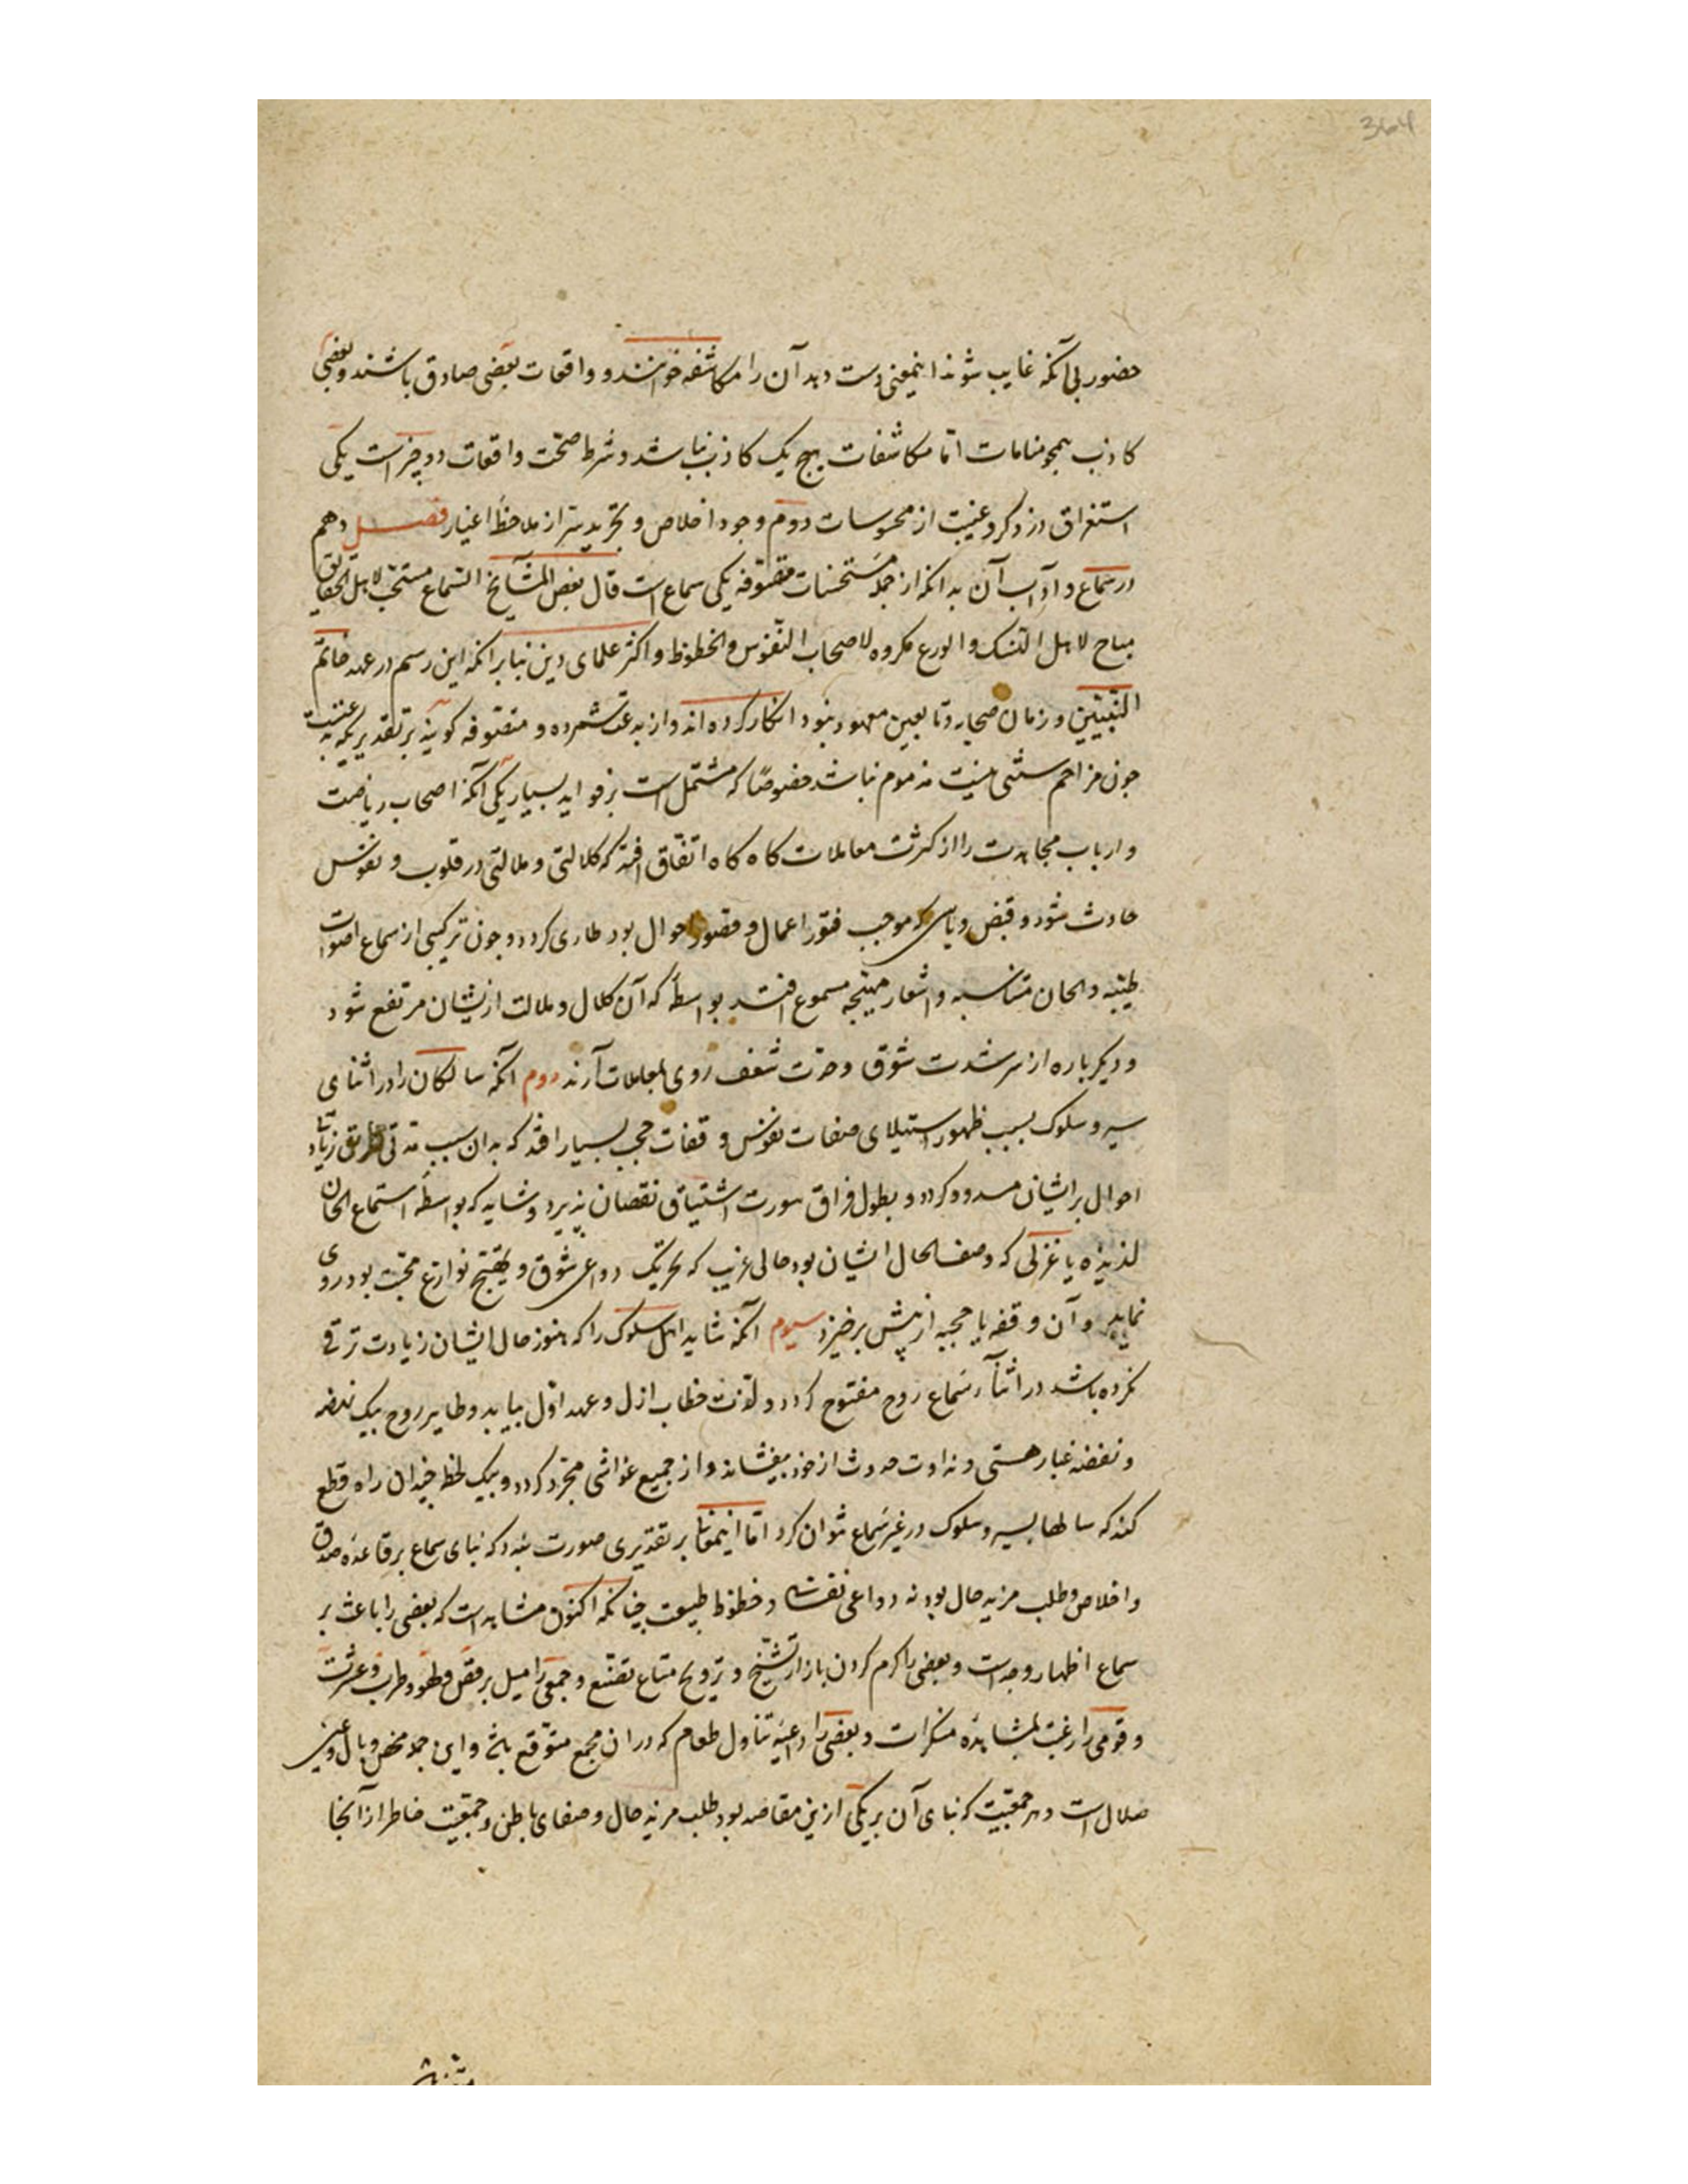 364
حضور بی آنکه غایب شوند اینمعنی دست دهد آن را مکاشفه خوانند و واقعات بعضی صادق باشند و بعضی
کاذب همچو منامات امّا مکاشفات هیچ یک کاذب نباشد و شرط صحّت واقعات دو چیزاست یکی
استغراق در ذکر و غیبت از محسوسات دوم وجود اخلاص و تجرید سرّ از ملاحظهٔ اغیار فصل دهم
در سماع و آداب آن بدانکه از جمله مستحسنات متصوّفه یکی سماع است قال بعض المشایخ السّماع مستحبّ لاهل الحقایق
مباح لاهل النّسک و الورع مکروه لاصحاب النّفوس و الحظوظ و اکثر علمای دین بنا برانکه این رسم در عهد خاتم
النّبیّین و زمان صحابه و تابعین معهود نبود انکار کرده اند و از بدعت شمرده و متصوّفه گویند بر تقدیری که بدعتیست
چون مزاحم سنّتی نیست مذموم نباشد خصوصًا که مشتمل است بر فواید بسیار یکی آنکه اصحاب ریاضت
و ارباب مجاهدت را از کثرت معاملات کاه کاه اتّفاق افتد که کلالتی و ملالتی در قلوب و نفوس
حادث شود و قبض و یاسی که موجب فتور اعمال و قصور احوال بود طاری کردد و چون ترکیبی از سماع اصوات
طیّبه و الحان متناسبه و اشعار مهیّجه مسموع افتد بواسطهٔ که آن کلال و ملالت ازیشان مرتفع شود
و دیکرباره از سر شدت شوق و حدّت شعف روی بمعاملات آرند دوم آنکه سالکان را در اثنای
سیر و سلوک بسبب ظهور استیلای صفات نفوس وقفات و حجب بسیار افتد که بدان سبب مدّتی طریق زیادت
احوال برایشان مسدود کردد و بطول فراق سورت اشتیاق نقصان پذیرد و شاید که بواسطهٔ استماع الحان
لذیذه یا غزلی که وصف الحال ایشان بود حالی غریب که تحریک دواعی شوق و تهییج نوازع محبّت بود روی
نماید و آن وقفه یا حجبه از پیش برخیزد سیوم آنکه شاید اهل سلوک را که هنوز حال ایشان زیادت ترقی
نکرده باشد در اثنآء سماع روح مفتوح کردد و لذّت خطاب ازل و عهد اوّل بیابد و طایر روح بیک نهضه
و نفضه غبار هستی و نداوت حدوث از خود بیفشاند و از جمیع غواشی مجرّد کردد و بیک لحظه چندان راه قطع
کند که سالها بسیر و سلوک در غیر سماع نتوان کرد امّا اینمعنا بر تقدیری صورت بندد که بنای سماع بر قاعدهٔ صدق
و اخلاص و طلب مزید حال بود نه دواعی نفسانی و حظوظ طبیعت چنانکه اکنون مشاهد است که بعضی را باعث بر
سماع اظهار وجد است و بعضی را کرم کردن بازار تشیّخ و ترویج متاع تصنّع و جمعی را میل بر رقص و لهو و طرب و عشرت
و قومی را رغبت بمشاهدهٔ منکرات و بعضی را داعیهٔ تناول طعام که در ان مجمع متوقّع باشد و این جمله محض وبال و عین
ضلال است و هر جمعیّت که بنای آن بر یکی ازین مقاصد بود طلب مزید حال و صفای باطن و جمعیّت خاطر از آنجا